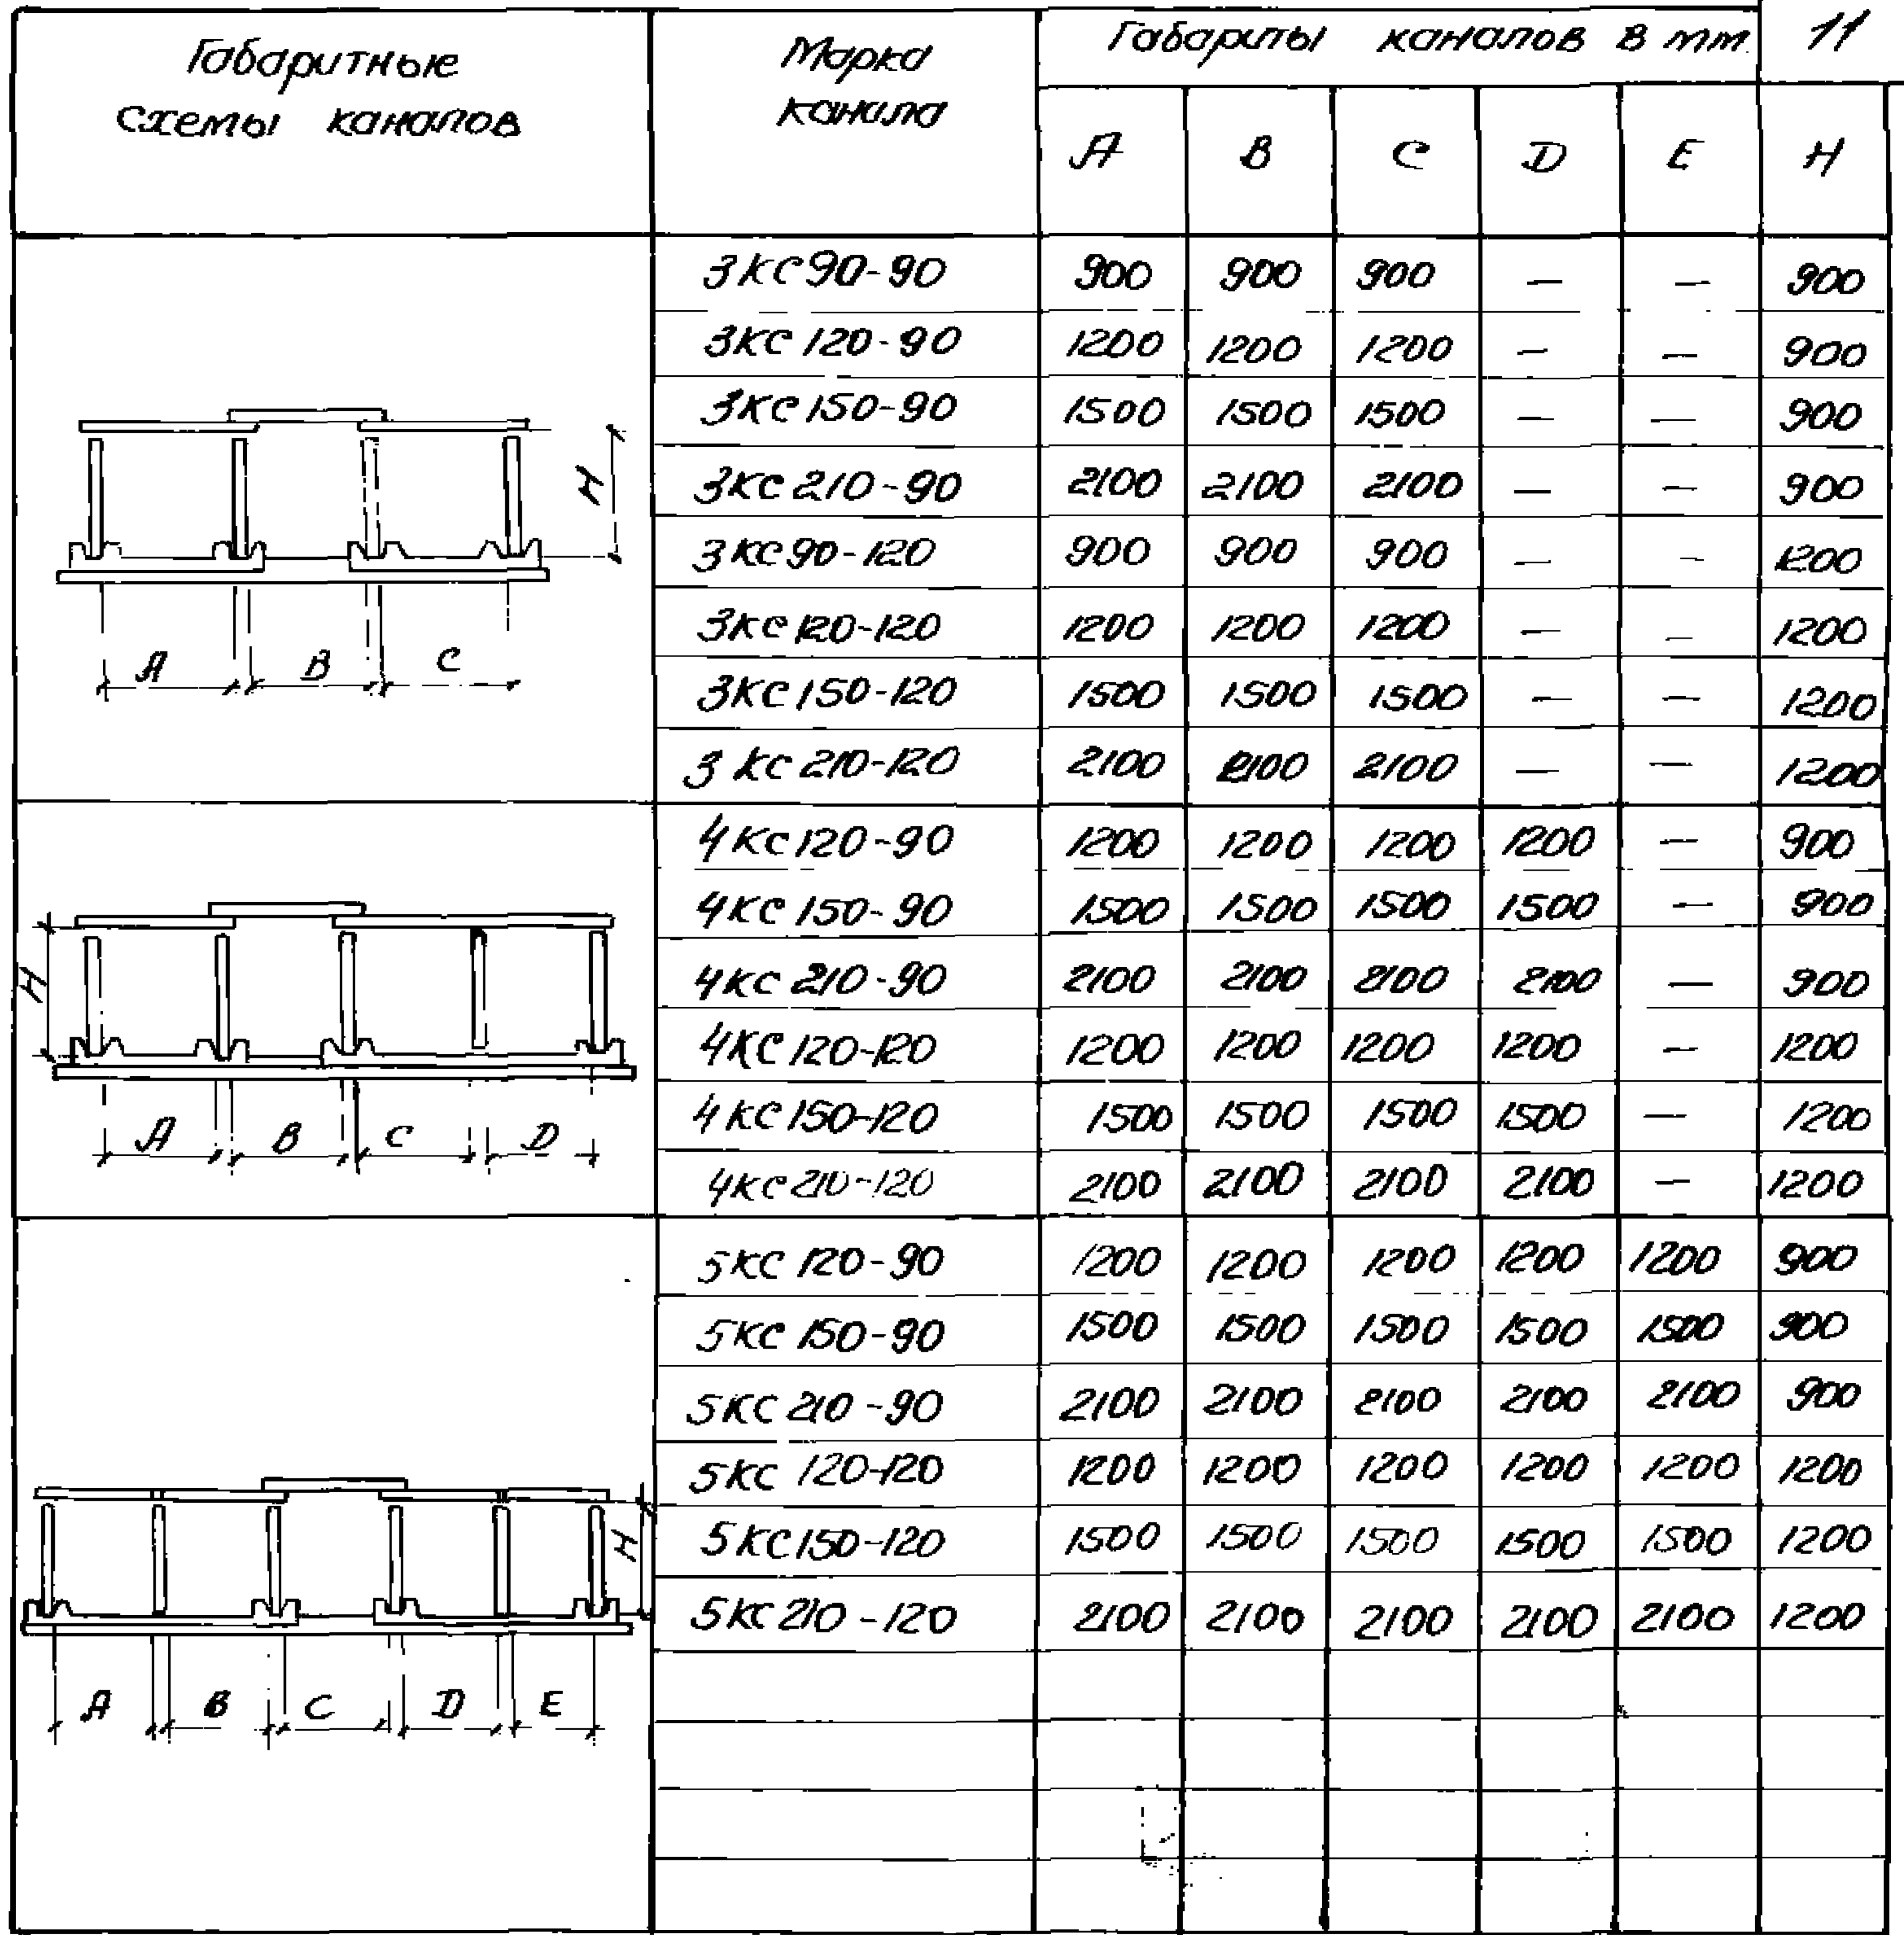 Габаритные
схемы каналов
Марка
канала
Габариты каналов в мм
11
A B C D E H
3КС 90-90 900 900 900 — — 900
3КС 120-90 1200 1200 1200 — — 900
3КС 150-90 1500 1500 1500 — — 900
3КС 210-90 2100 2100 2100 — — 900
3КС 90-120 900 900 900 — — 1200
3КС 120-120 1200 1200 1200 — — 1200
3КС 150-120 1500 1500 1500 — — 1200
3КС 210-120 2100 2100 2100 — — 1200
H
A B C
4КС 120-90 1200 1200 1200 1200 — 900
4КС 150-90 1500 1500 1500 1500 — 900
4КС 210-90 2100 2100 2100 2100 — 900
4КС 120-120 1200 1200 1200 1200 — 1200
4КС 150-120 1500 1500 1500 1500 — 1200
4КС 210-120 2100 2100 2100 2100 — 1200
H
A B C D
5КС 120-90 1200 1200 1200 1200 1200 900
5КС 150-90 1500 1500 1500 1500 1500 900
5КС 210-90 2100 2100 2100 2100 2100 900
5КС 120-120 1200 1200 1200 1200 1200 1200
5КС 150-120 1500 1500 1500 1500 1500 1200
5КС 210-120 2100 2100 2100 2100 2100 1200
H
A B C D E